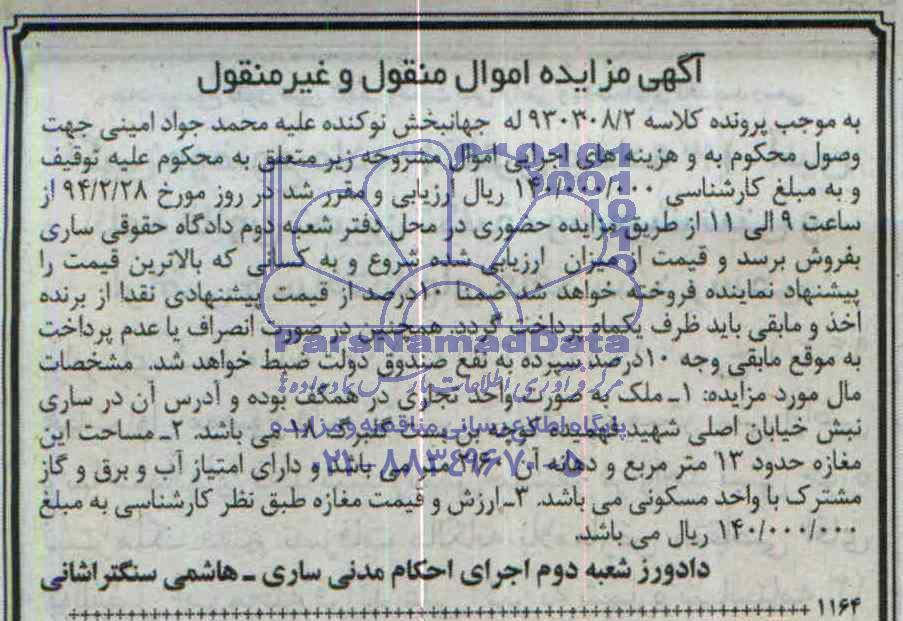 آگهی مزایده اموال منقول و غیرمنقول
به موجب پرونده کلاسه ۹۳۰۳۰۸/۲ له جهانبخش نوکنده علیه محمد جواد امینی جهت
وصول محکوم به و هزینه های اجرایی اموال مشروحه زیر متعلق به محکوم علیه توقیف
و به مبلغ کارشناسی ۱۴۰/۰۰۰/۰۰۰ ریال ارزیابی و مقرر شد در روز مورخ ۹۴/۲/۲۸ از
ساعت ۹ الی ۱۱ از طریق مزایده حضوری در محل دفتر شعبه دوم دادگاه حقوقی ساری
بفروش برسد و قیمت از میزان ارزیابی شده شروع و به کسانی که بالاترین قیمت را
پیشنهاد نماینده فروخته خواهد شد ضمنا ۱۰درصد از قیمت پیشنهادی نقدا از برنده
اخذ و مابقی باید ظرف یکماه پرداخت گردد. همچنین در صورت انصراف یا عدم پرداخت
به موقع مابقی وجه ۱۰درصد سپرده به نفع صندوق دولت ضبط خواهد شد. مشخصات
مال مورد مزایده: ۱ـ ملک به صورت واحد تجاری در همکف بوده و آدرس آن در ساری
نبش خیابان اصلی شهید فهمیده کوچه بن بست گلبرگ ۱۸ می باشد. ۲ـ مساحت این
مغازه حدود ۱۳ متر مربع و دهانه آن متر می باشد و دارای امتیاز آب و برق و گاز
مشترک با واحد مسکونی می باشد. ۳ـ ارزش و قیمت مغازه طبق نظر کارشناسی به مبلغ
۱۴۰/۰۰۰/۰۰۰ ریال می باشد.
دادورز شعبه دوم اجرای احکام مدنی ساری ـ هاشمی سنگتراشانی
۱۱۶۴
ParsNamadData
مرکز فرآوری اطلاعات پارس نماد داده ها
پایگاه اطلاع رسانی مناقصه و مزایده
۰۲۱-۸۸۳۴۹۶۷۰-۵